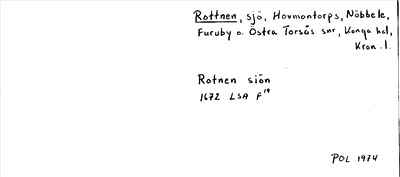 Rottnen, sjö, Hovmantorps, Nöbbele,
Furuby o. Östra Torsås snr, Konga hd,
Kron. l.
Rotnen siön
1672 LSA F 19
POL 1974